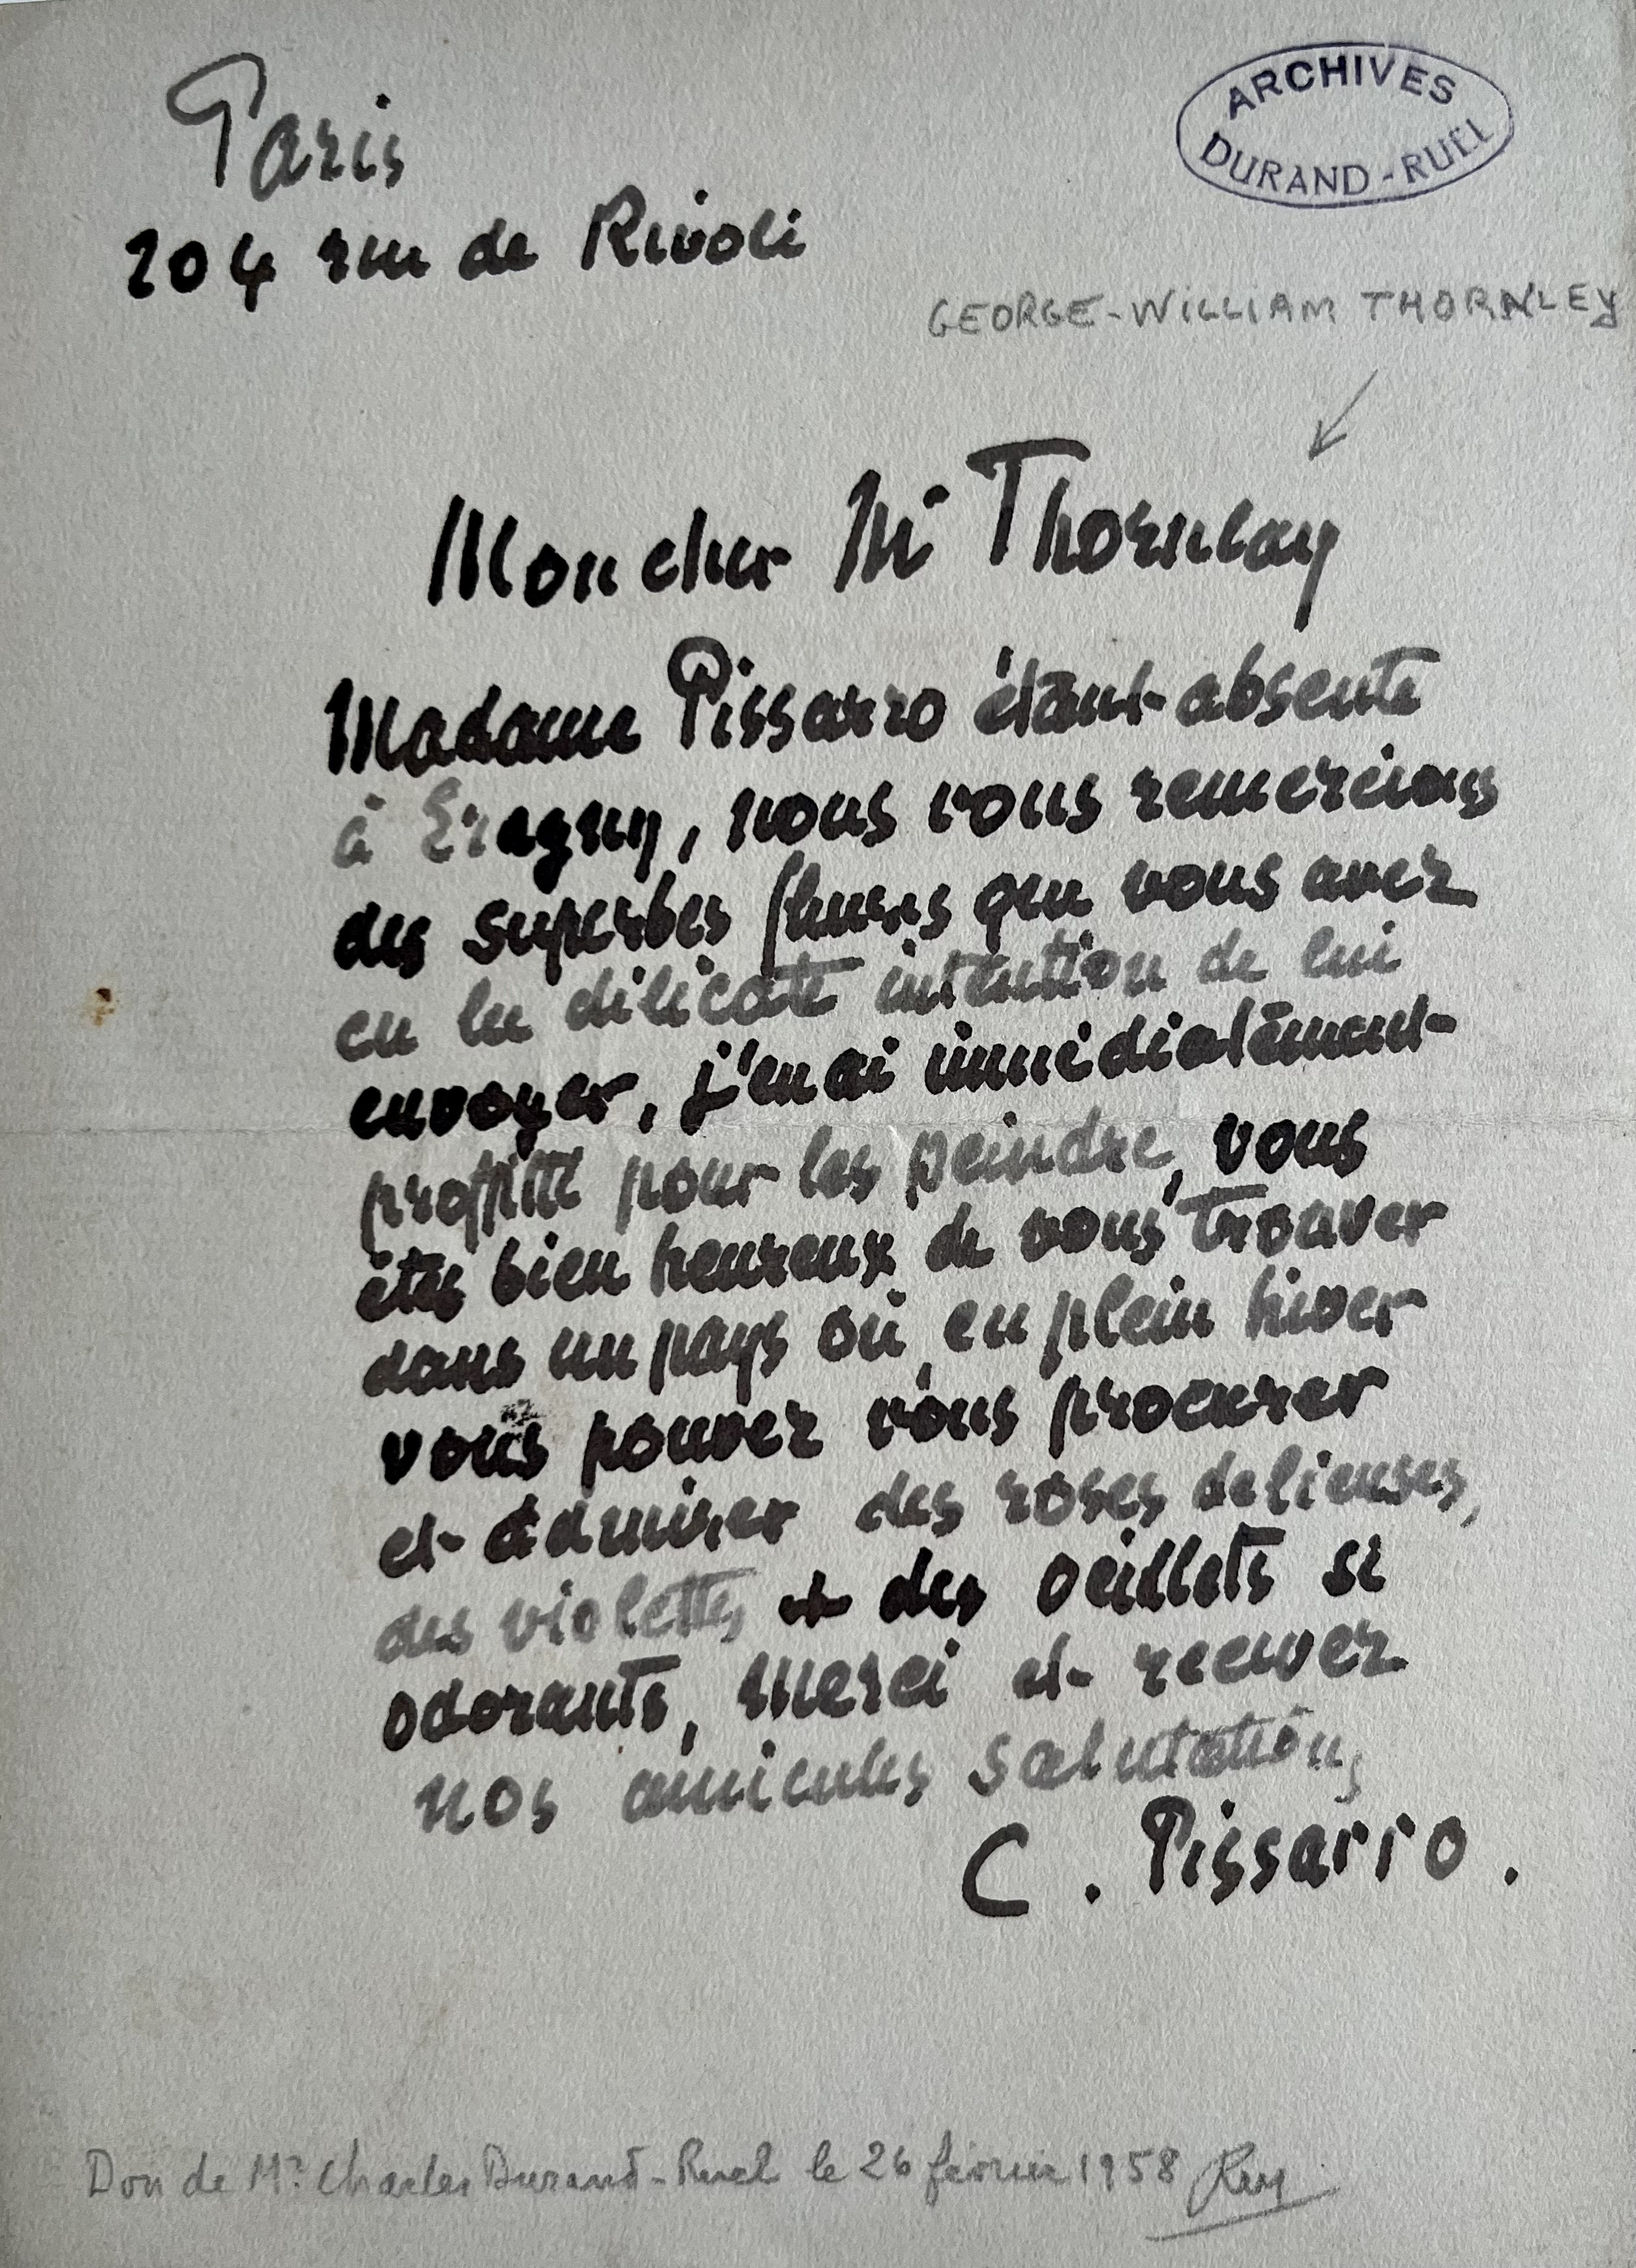 Paris
ARCHIVES
DURAND-RUEL
204 rue de Rivoli
GEORGE-WILLIAM THORNLEY
Mon cher Mr Thornlay
Madame Pissarro étant absente
à Eragny, nous vous remercions
des superbes fleures que vous avez
eu la délicate intention de lui
envoyer, j'en ai immédiatement
proffité pour les peindre, vous
êtes bien heureux de vous trouver
dans un pays où, en plein hiver
vous pouvez vous procurer
et admirer des roses delieuses,
des violettes + des oeillets si
odorants, merci et recevez
nos amicales salutations
C. Pissarro.
Don de Mr. Charles Durand-Ruel le 26 février 1958